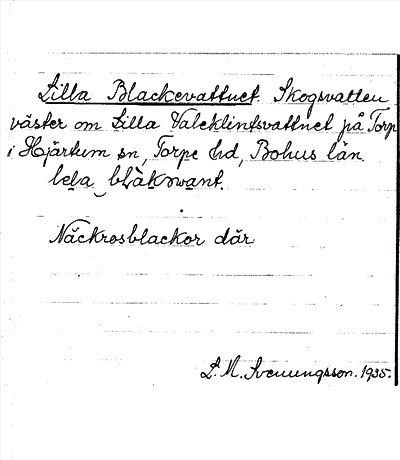 Lilla Blackevattnet. Skogsvatten
väster om Lilla Valeklintsvattnet på Torp
i Hjärtum sn, Torpe hd, Bohus län.
lela blàkəwant.
Näckrosblackor där
L. M. Svenungsson. 1935.